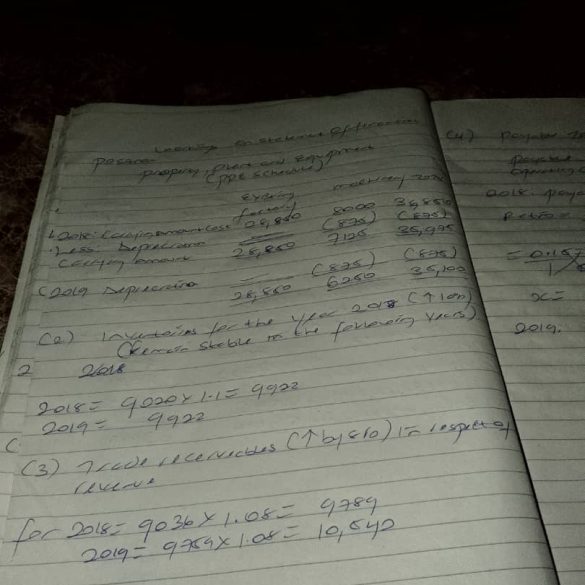 Working on statement of financial
position
property, plant and equipment
(PPE schedule)
existing machinery
factory
2018: Carrying amount cost 28,850 8000 36,850
Less: Depreciation (875) (875)
Carrying amount 28,850 7125 35,975
2019 Depreciation (875) (875)
28,850 6250 35,100
(2) Inventories for the year 2018 (↑10%)
(Remain stable in the following years)
2018
2018 = 9020 x 1.1 = 9922
2019 = 9922
(3) Trade receivables (↑ by 8%) in respect of
revenue
for 2018 = 9036 x 1.08 = 9759
2019 = 9759 x 1.08 = 10,540
(4)
2018:
= 0.15
1
x =
2019: